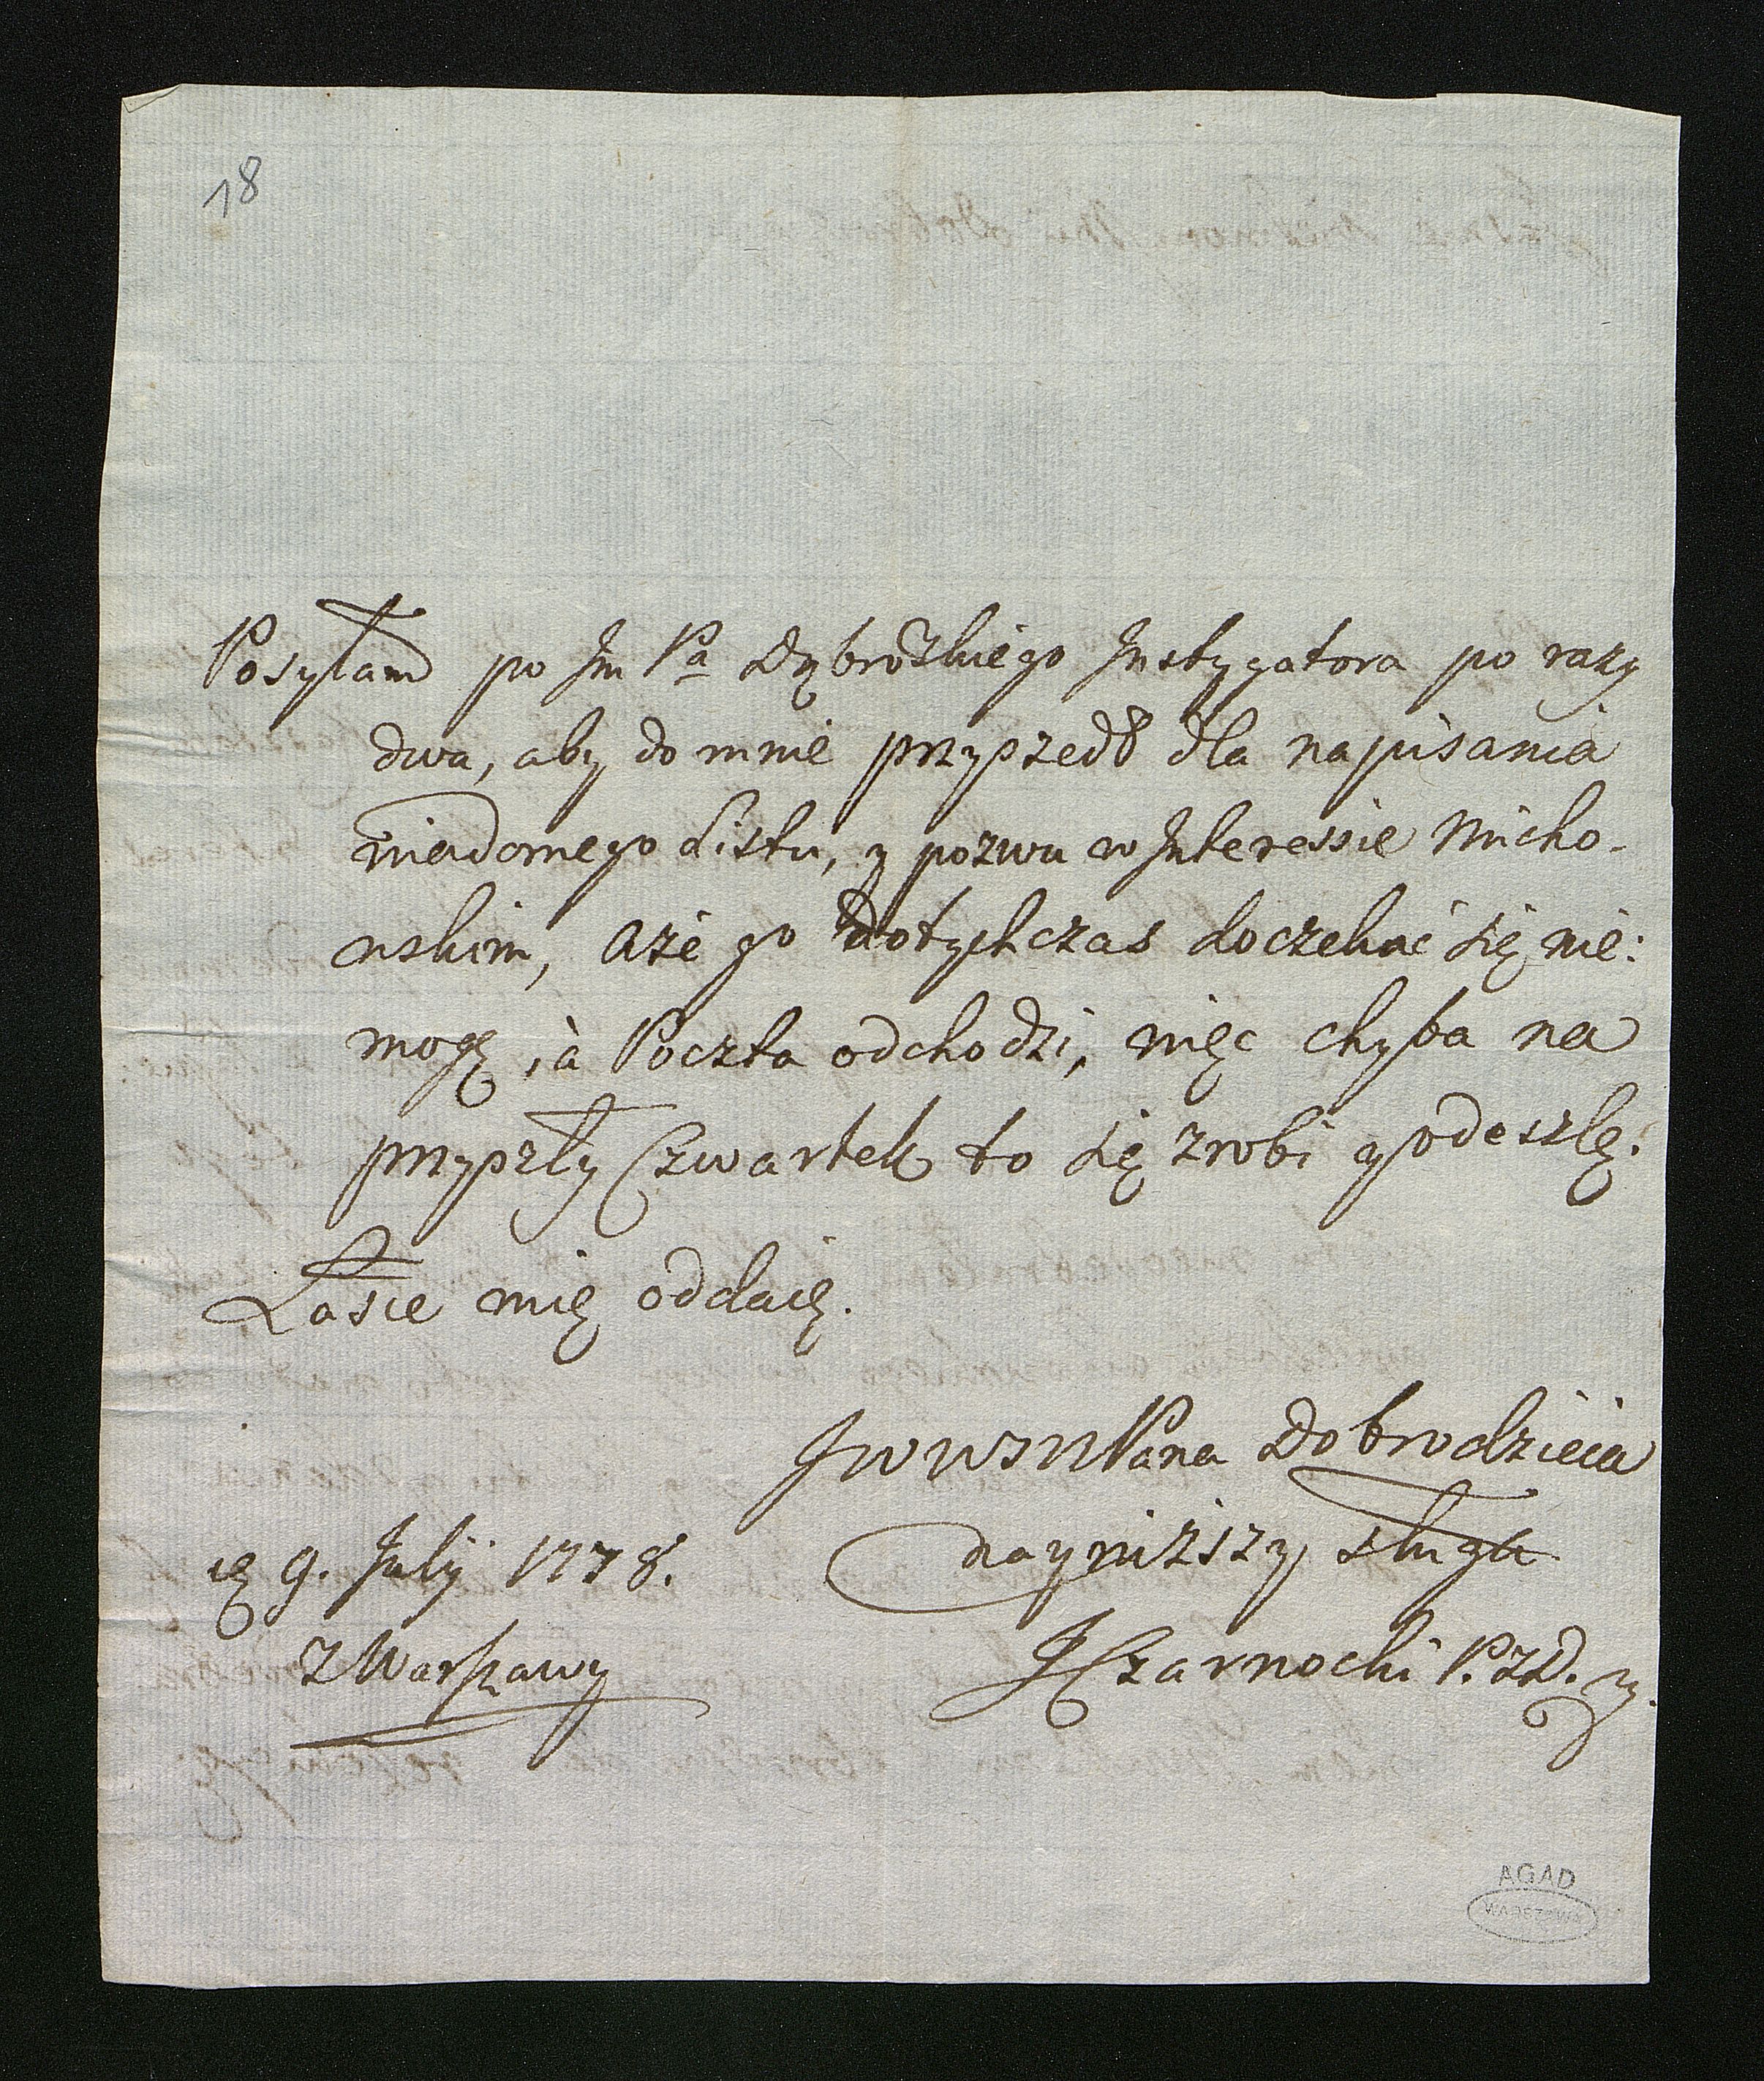 18
Posyłam po Jm Pa Dąbrozkiego Instygatora po razy
dwa, aby do mnie przyszedł dla napisania
wiadomego Listu, y pozwu w Interessie Micho-
wskim, aże go dotychczas doczekać się nie:
mogę, à Poczta odchodzi, więc chyba na
przyszły Czwartek to się zrobi y odeszlę.
Łasce mię oddaię.
JWWMPana Dobrodzieia
nayniższy sługa
9. Julij 1778.
z Warszawy
JCzarnocki P.Z.D.
AGAD
WARSZAWA